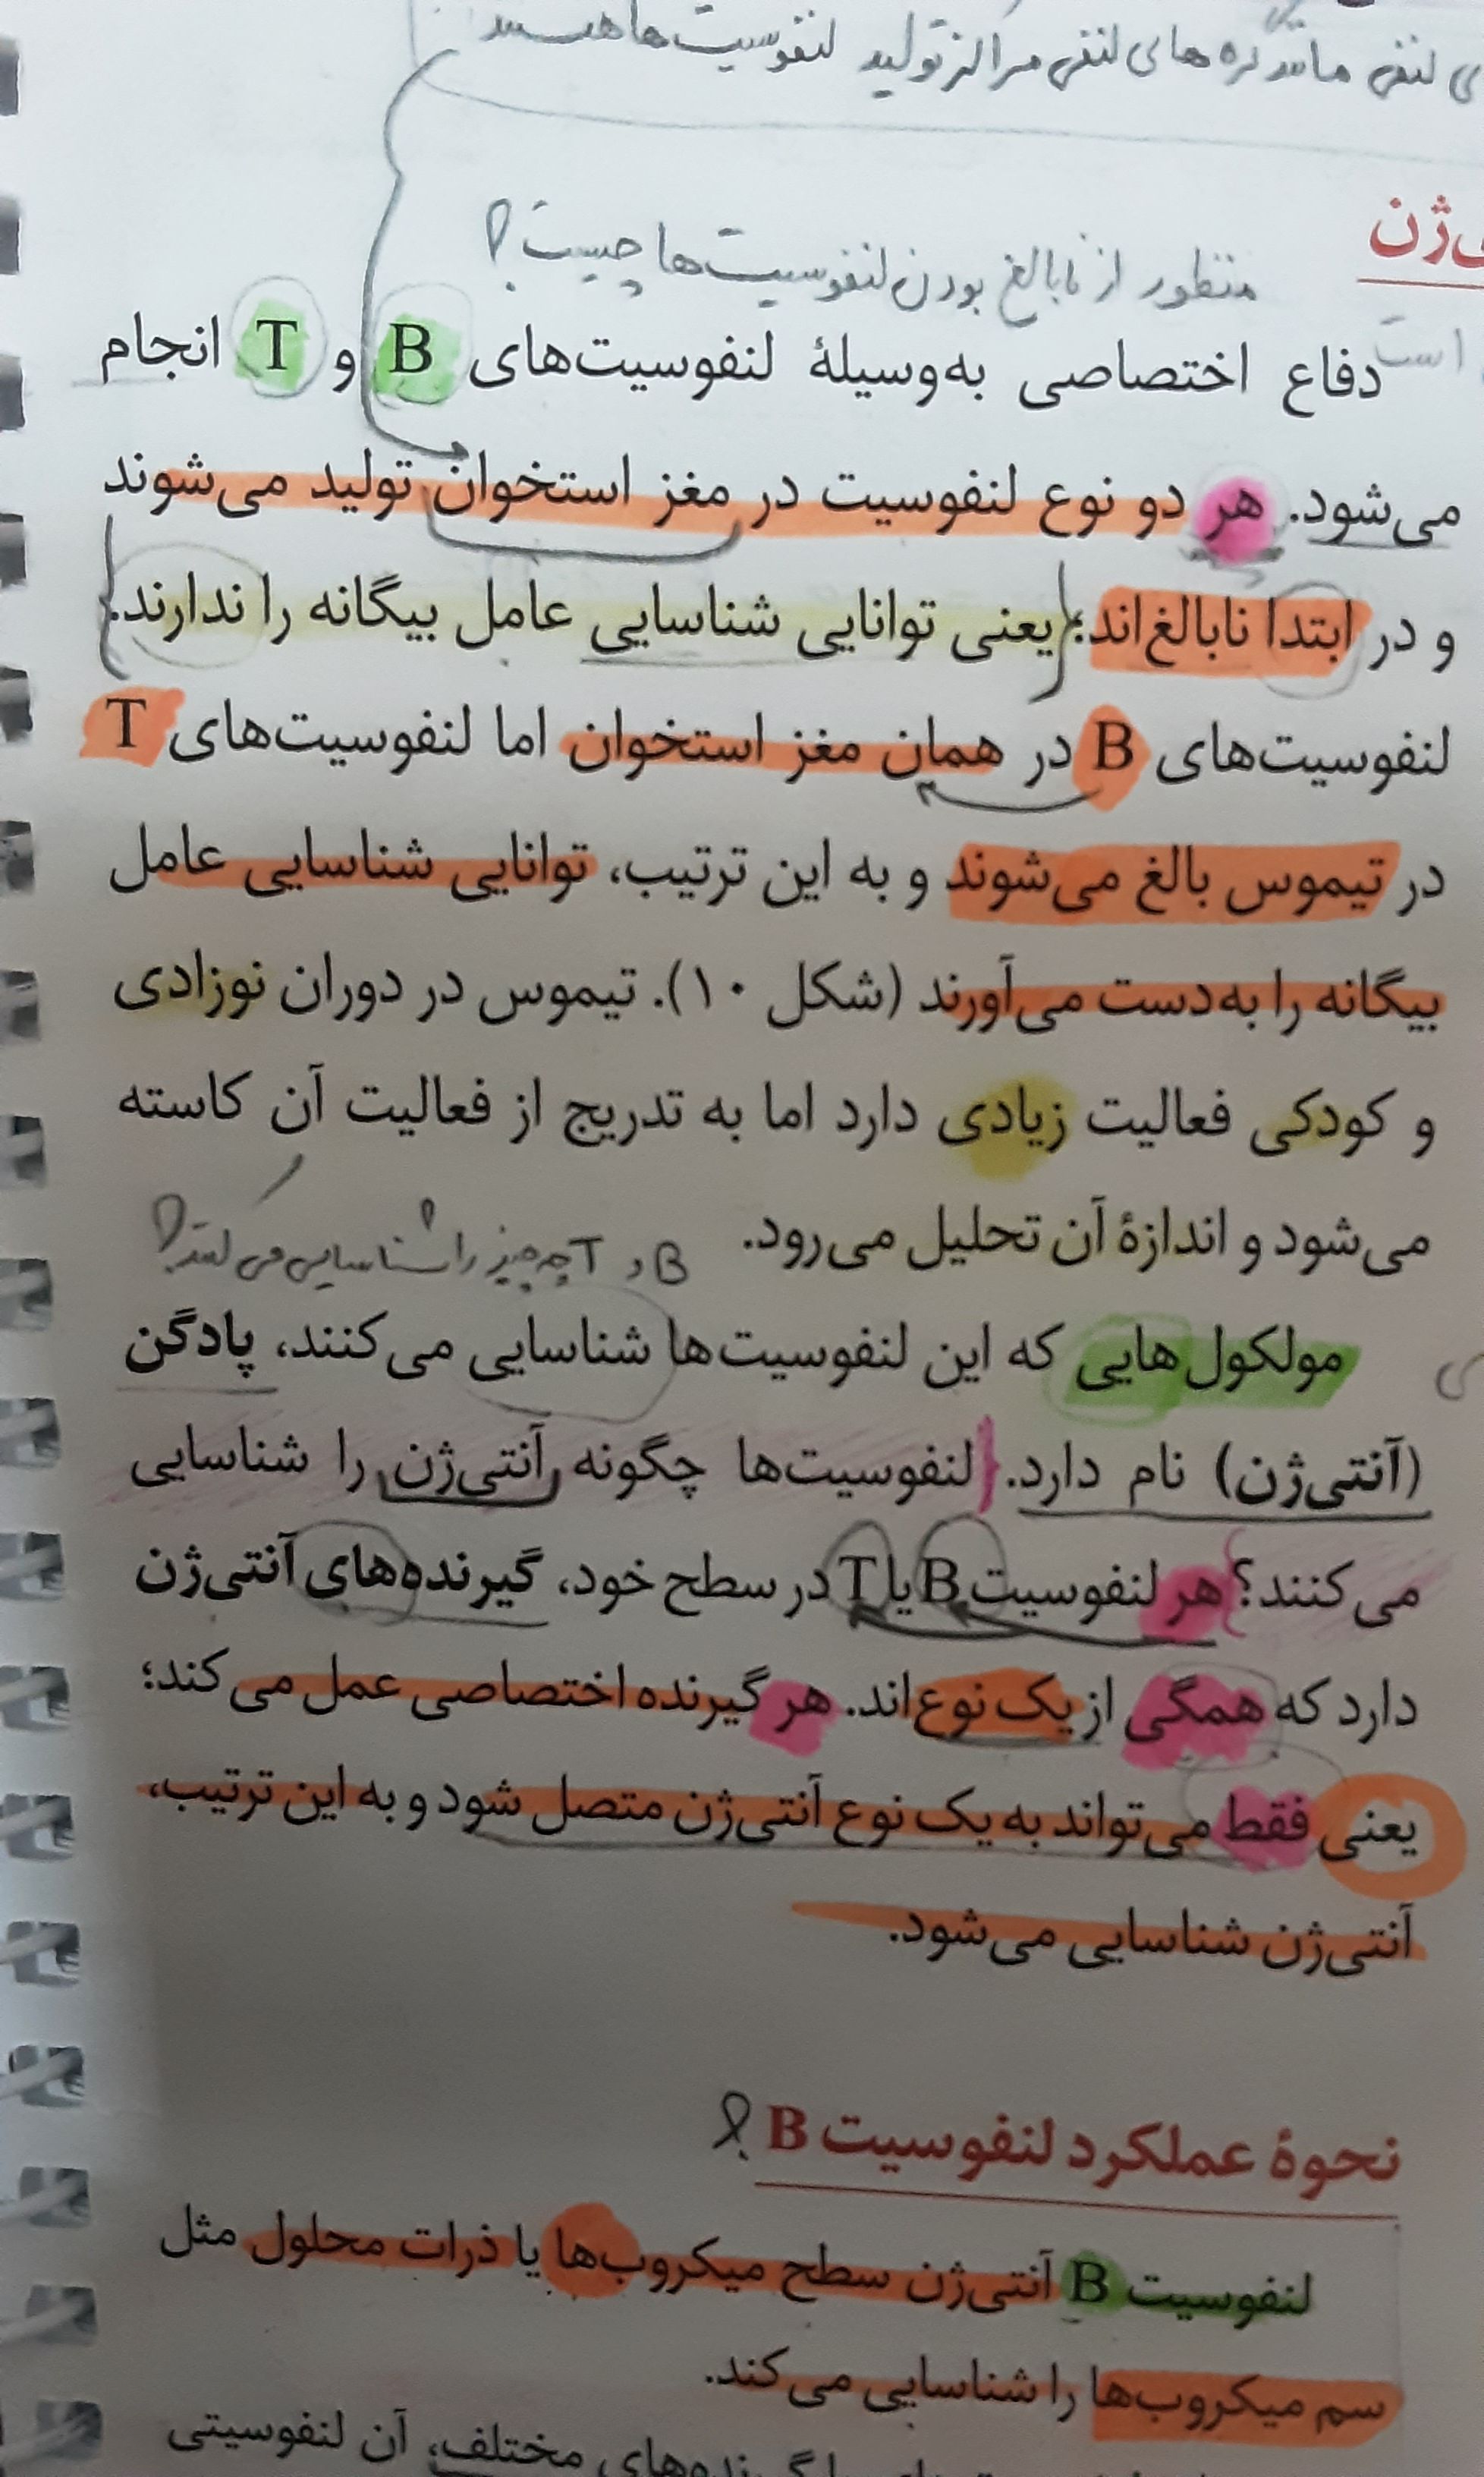 لنفی مانند گره های لنفی مراکز تولید لنفوسیت‌ها هستند
منظور از نابالغ بودن لنفوسیت‌ها چیست؟
است
دفاع اختصاصی به‌وسیلهٔ لنفوسیت‌های B و T انجام
می‌شود. هر دو نوع لنفوسیت در مغز استخوان تولید می‌شوند
و در ابتدا نابالغ‌اند؛ یعنی توانایی شناسایی عامل بیگانه را ندارند.
لنفوسیت‌های B در همان مغز استخوان اما لنفوسیت‌های T
در تیموس بالغ می‌شوند و به این ترتیب، توانایی شناسایی عامل
بیگانه را به‌دست می‌آورند (شکل ۱۰). تیموس در دوران نوزادی
و کودکی فعالیت زیادی دارد اما به تدریج از فعالیت آن کاسته
می‌شود و اندازهٔ آن تحلیل می‌رود.
B و T چه چیز را شناسایی می کنند؟
مولکول‌هایی که این لنفوسیت‌ها شناسایی می‌کنند، پادگن
(آنتی‌ژن) نام دارد. لنفوسیت‌ها چگونه آنتی‌ژن را شناسایی
می‌کنند؟ هر لنفوسیت B یا T در سطح خود، گیرنده‌های آنتی‌ژن
دارد که همگی از یک نوع‌اند. هر گیرنده اختصاصی عمل می‌کند؛
یعنی فقط می‌تواند به یک نوع آنتی‌ژن متصل شود و به این ترتیب،
آنتی‌ژن شناسایی می‌شود.
نحوهٔ عملکرد لنفوسیت B ؟
لنفوسیت B آنتی‌ژن سطح میکروب‌ها یا ذرات محلول مثل
سم میکروب‌ها را شناسایی می‌کند.
گیرنده‌های مختلف، آن لنفوسیتی